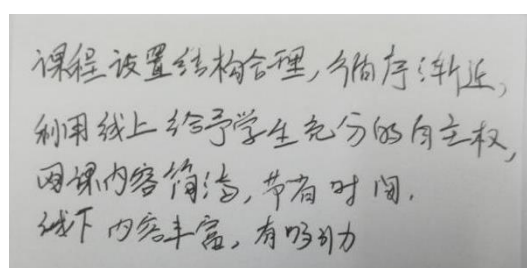 课程设置结构合理,循序渐近,
利用线上给予学生充分的自主权,
网课内容简洁,节省时间.
线下内容丰富,有吸引力